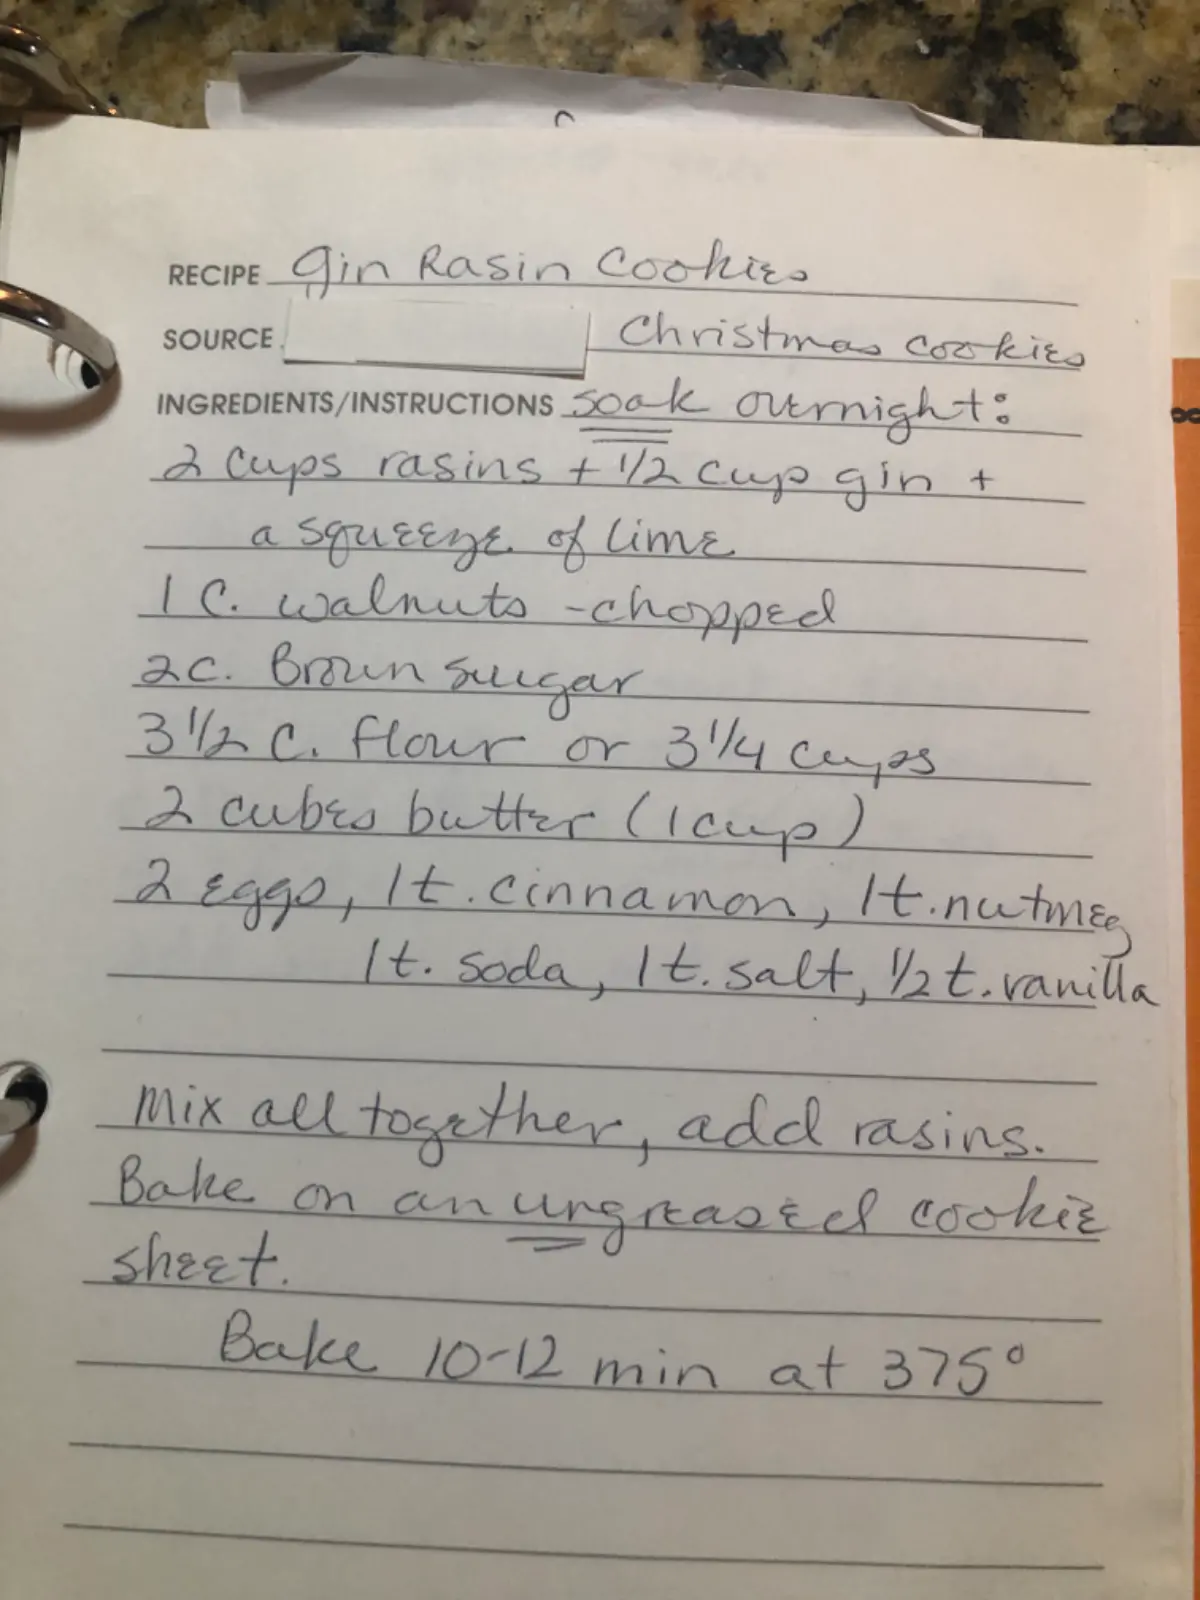 RECIPE Gin Rasin Cookies
SOURCE Christmas Cookies
INGREDIENTS/INSTRUCTIONS Soak overnight:
2 Cups rasins + 1/2 cup gin +
a squeeze of lime
1 C. walnuts - chopped
2 C. Brown sugar
3 1/2 C. flour or 3 1/4 cups
2 cubes butter (1 cup)
2 eggs, 1t. cinnamon, 1t. nutmeg
1t. soda, 1t. salt, 1/2 t. vanilla
Mix all together, add rasins.
Bake on an ungreased cookie
sheet.
Bake 10-12 min at 375°